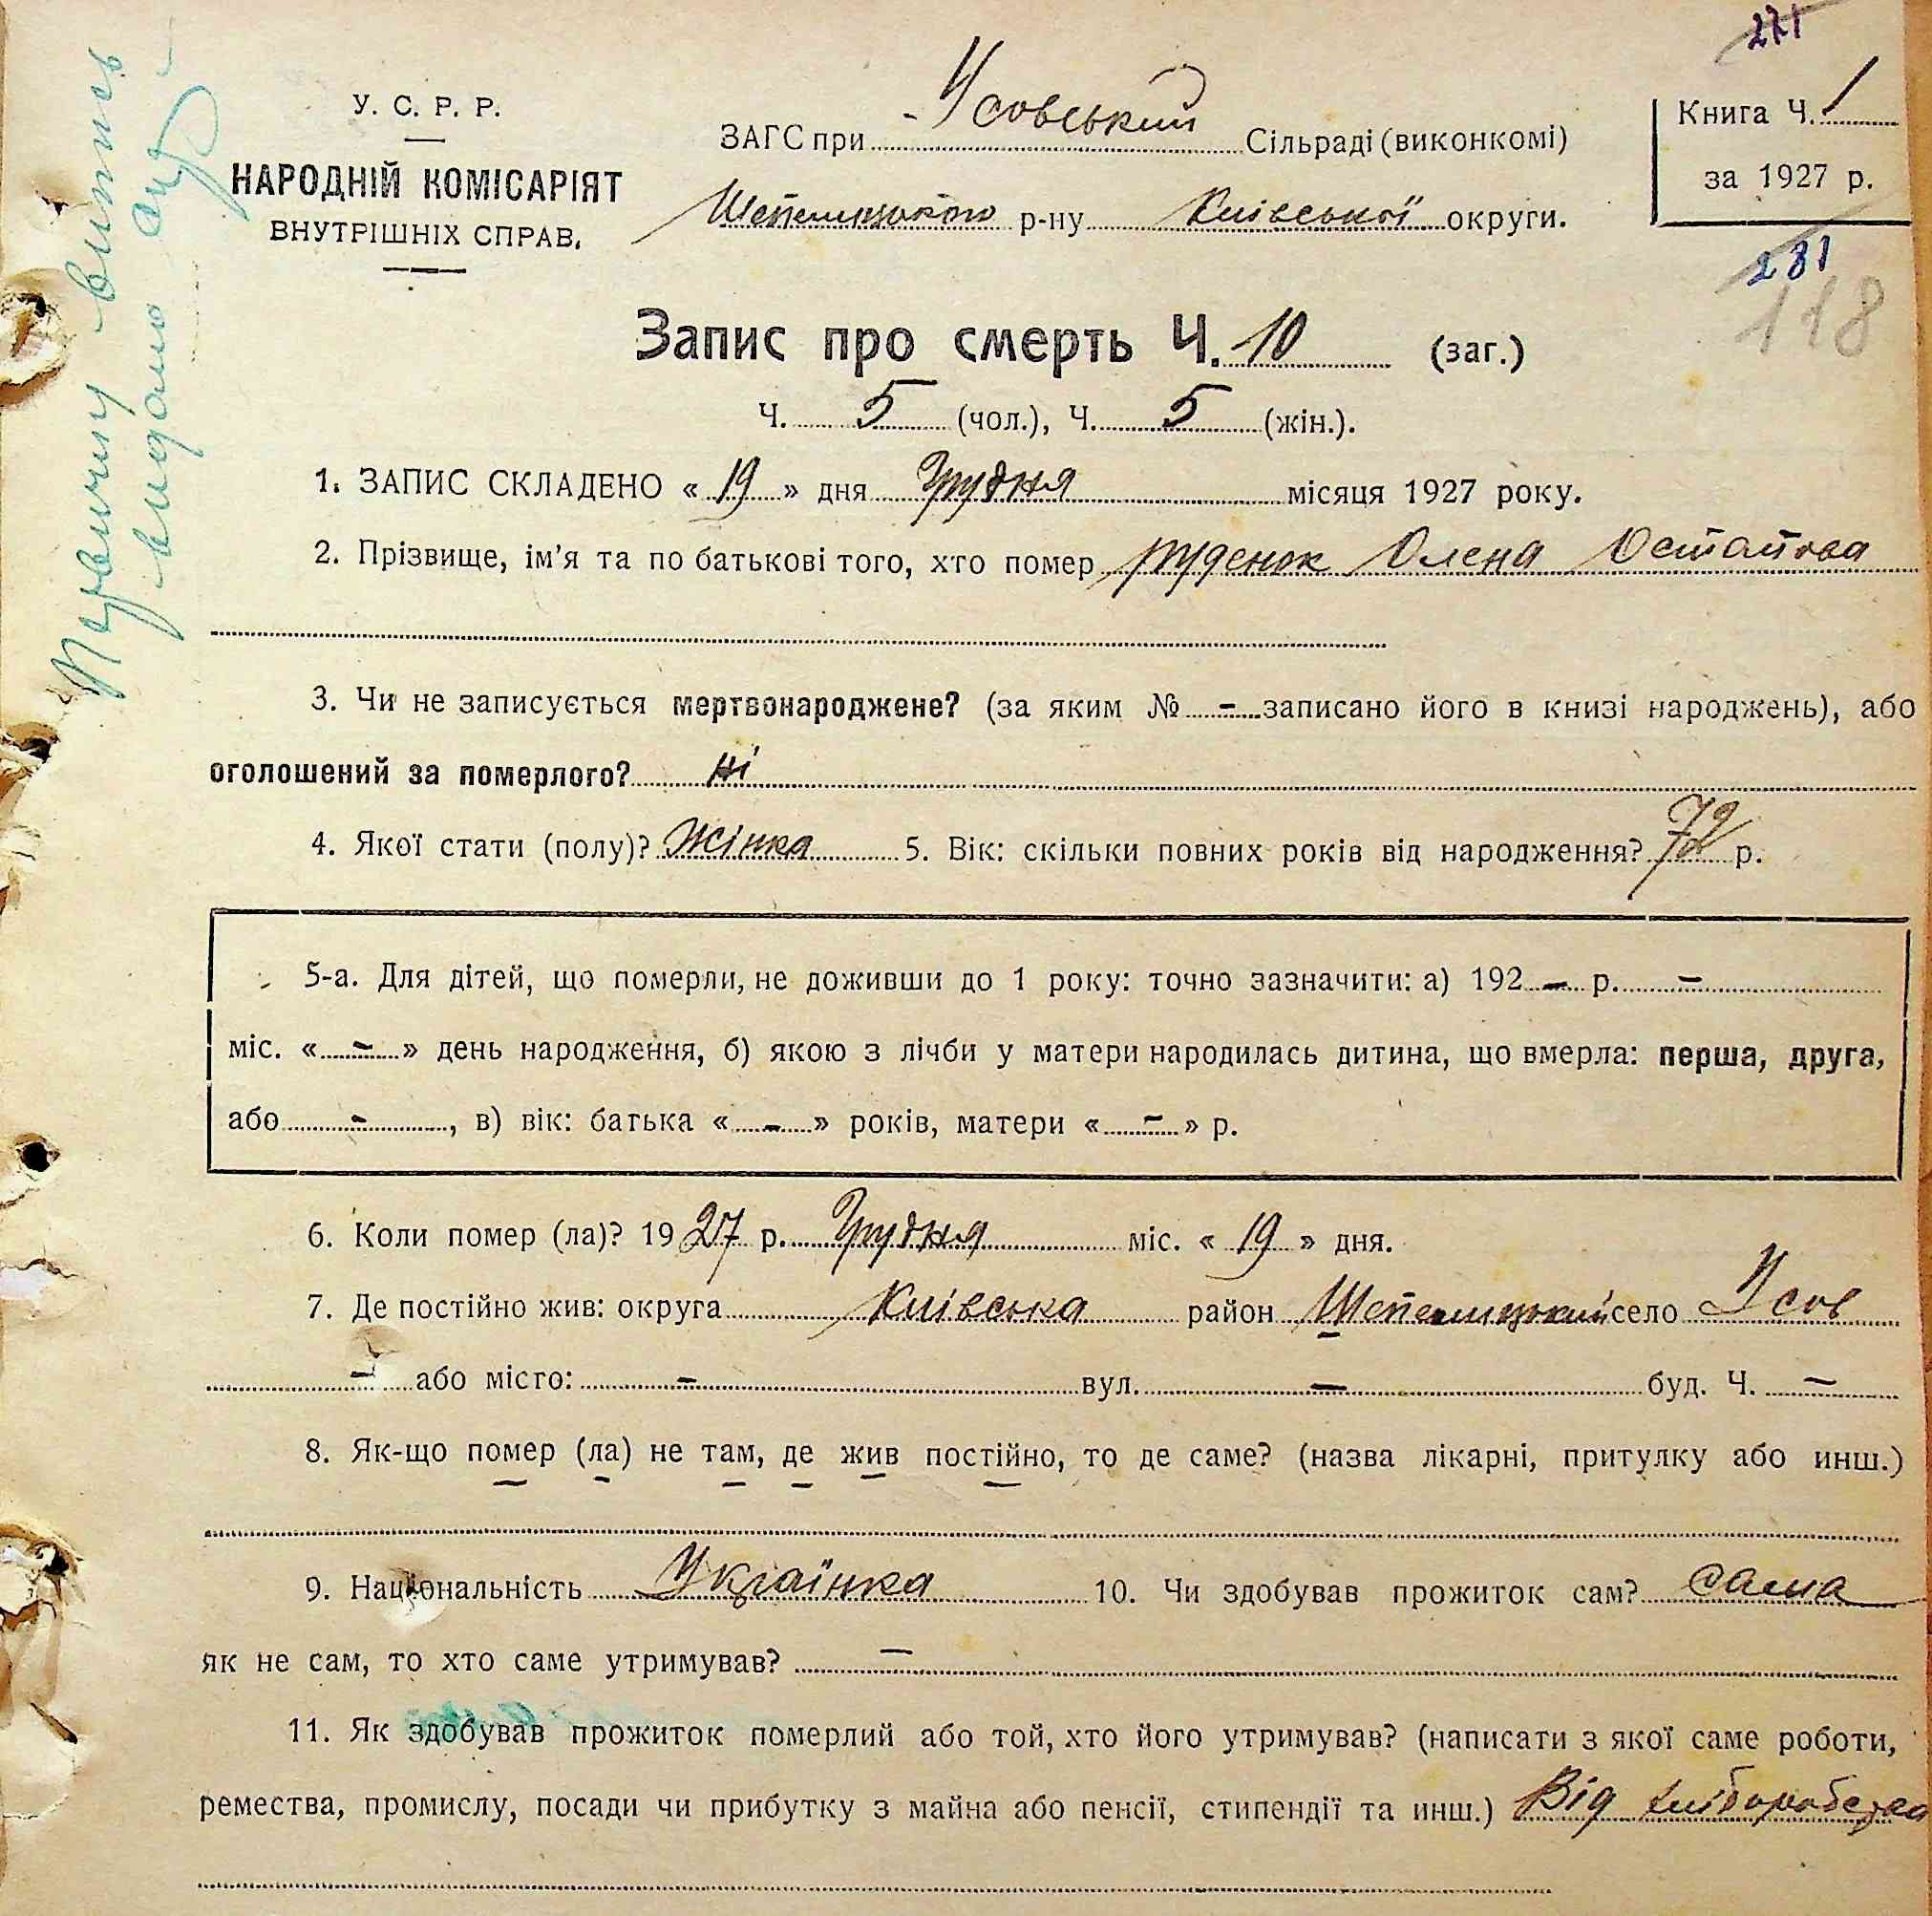 271
У. С. Р. Р.
НАРОДНІЙ КОМІСАРІЯТ
ВНУТРІШНІХ СПРАВ.
ЗАГС при Усовський Сільраді (виконкомі)
Шепелицького р-ну Київської округи.
Книга Ч. 1
за 1927 р.
281
118
Первичну випись
видано
Запис про смерть Ч. 10 (заг.)
Ч. 5 (чол.), Ч. 5 (жін.).
1. ЗАПИС СКЛАДЕНО « 19 » дня Грудня місяця 1927 року.
2. Прізвище, ім'я та по батькові того, хто помер Руденок Олена Остапова
3. Чи не записується мертвонароджене? (за яким № - записано його в книзі народжень), або
оголошений за померлого? ні
4. Якої стати (полу)? Жінка 5. Вік: скільки повних років від народження? 72 р.
5-а. Для дітей, що померли, не доживши до 1 року: точно зазначити: а) 192 - р. -
міс. « - » день народження, б) якою з лічби у матери народилась дитина, що вмерла: перша, друга,
або - , в) вік: батька « - » років, матери « - » р.
6. Коли помер (ла)? 1927 р. Грудня міс. « 19 » дня.
7. Де постійно жив: округа Київська район Шепелицький село Усов
- або місто: - вул. - буд. Ч. -
8. Як-що помер (ла) не там, де жив постійно, то де саме? (назва лікарні, притулку або инш.)
9. Національність Українка 10. Чи здобував прожиток сам? сама
як не сам, то хто саме утримував? -
11. Як здобував прожиток померлий або той, хто його утримував? (написати з якої саме роботи,
ремества, промислу, посади чи прибутку з майна або пенсії, стипендії та инш.) Від